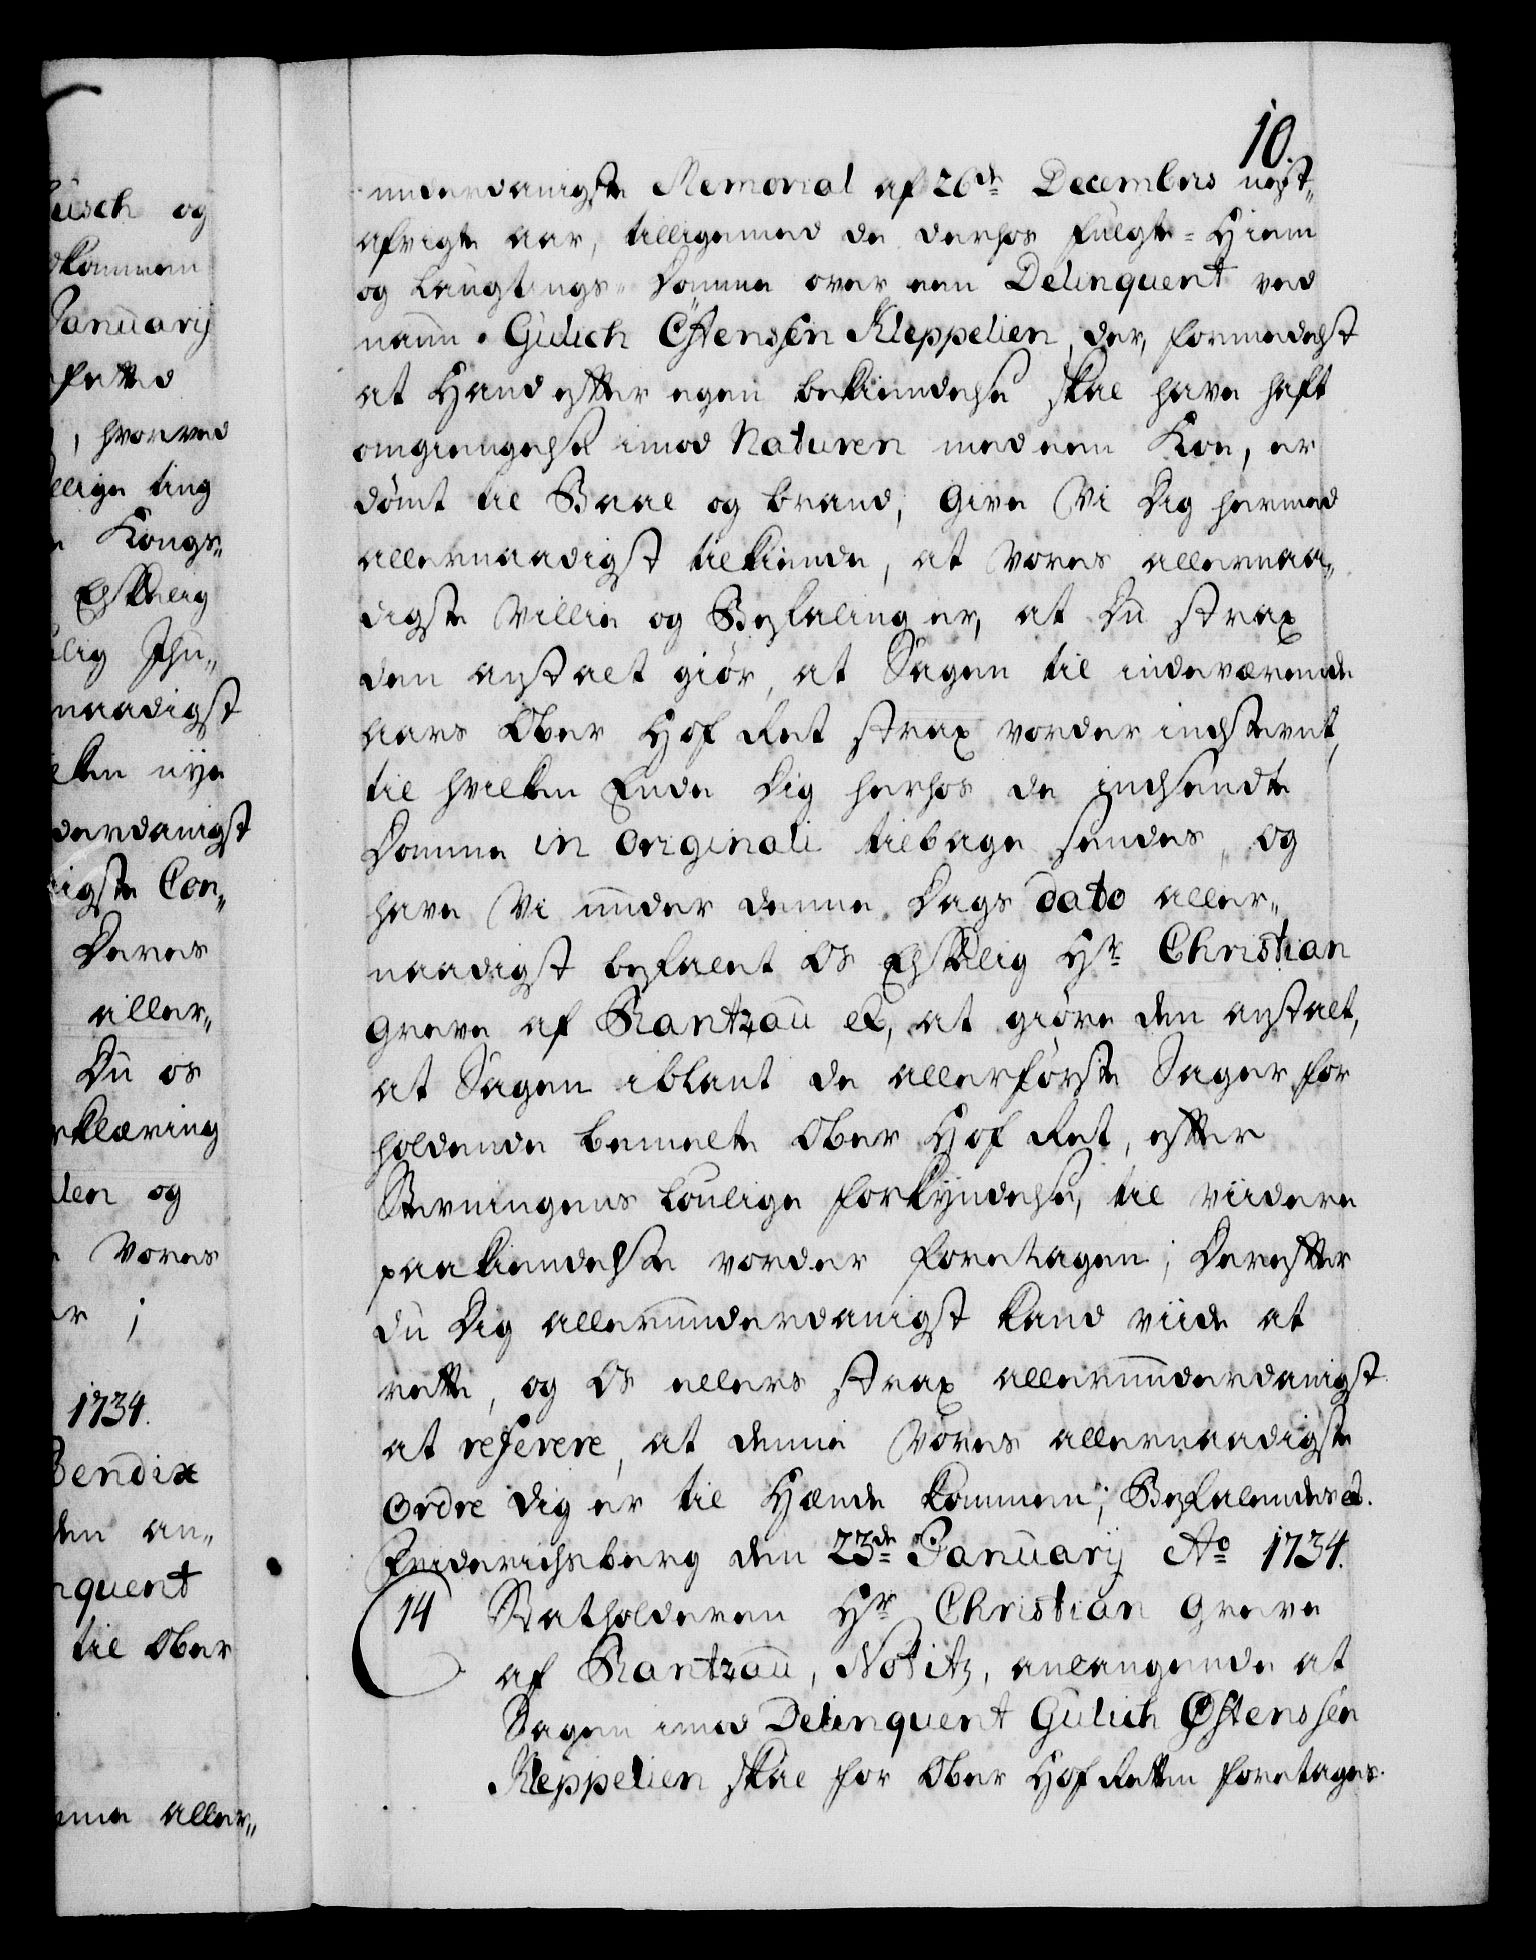 10.
underdanigste Memorial af 26de Decembris nest-
afvigte aar, tilligemed de derhos fulgte-Hiem
og Laugtings-Domme over een Delinquent ved
naun. Gulich Østenssen Kleppelien, der, formedelst
at Hand efter egen bekiendelse skal have haft
omgiengelse imod Naturen med een Koe, er
dömt til Baal og brand; Give Vi Dig hermed
allernaadigst tilkiende, at vores allernaa-
digste Villie og Befaling er, at Du strax
den anstalt giör, at Sagen til indeværende
aars Ober Hof Ret strax vorder indstevnt,
til hvilken Ende Dig herhos de indsendte
Domme in originali tilbage sendes, og
have Vi under denne Dags dato aller-
naadigst befalet Os Elskelig Hr Christian
Greve af Rantzau etc, at giöre den anstalt,
at Sagen iblant de allerförste Sager for
holdende bemelte Ober Hof Ret, efter
Stevningens Loulige forkyndelse, til viidere
paakiendelse vorder foretagen; Derefter
du Dig allerunderdanigst kand viide at
rette, og Os ellers strax allerunderdanigst
at referere, at denne Vores allernaadigste
Ordre dig er til Hænde kommen; Befalendes etc.
Friderichsberg den 23de Januarij Ao 1734.
14 Statholderen Hr Christian Greve
af Rantzau, Notitz, anlangende at
Sagen imod Delinquent Gulich Østenssen
Kleppelien skal for Ober Hof Retten foretages.
usch og
dkommen
Januarij
, hvorved
llige ting
Kongs-
Elskelig
naadigst
nye
derdanigst
igste Con-
Deres
aller-
Du os
rklæring
og
Vores
1734.
Bendix
den an-
nquent
til Ober
aller-